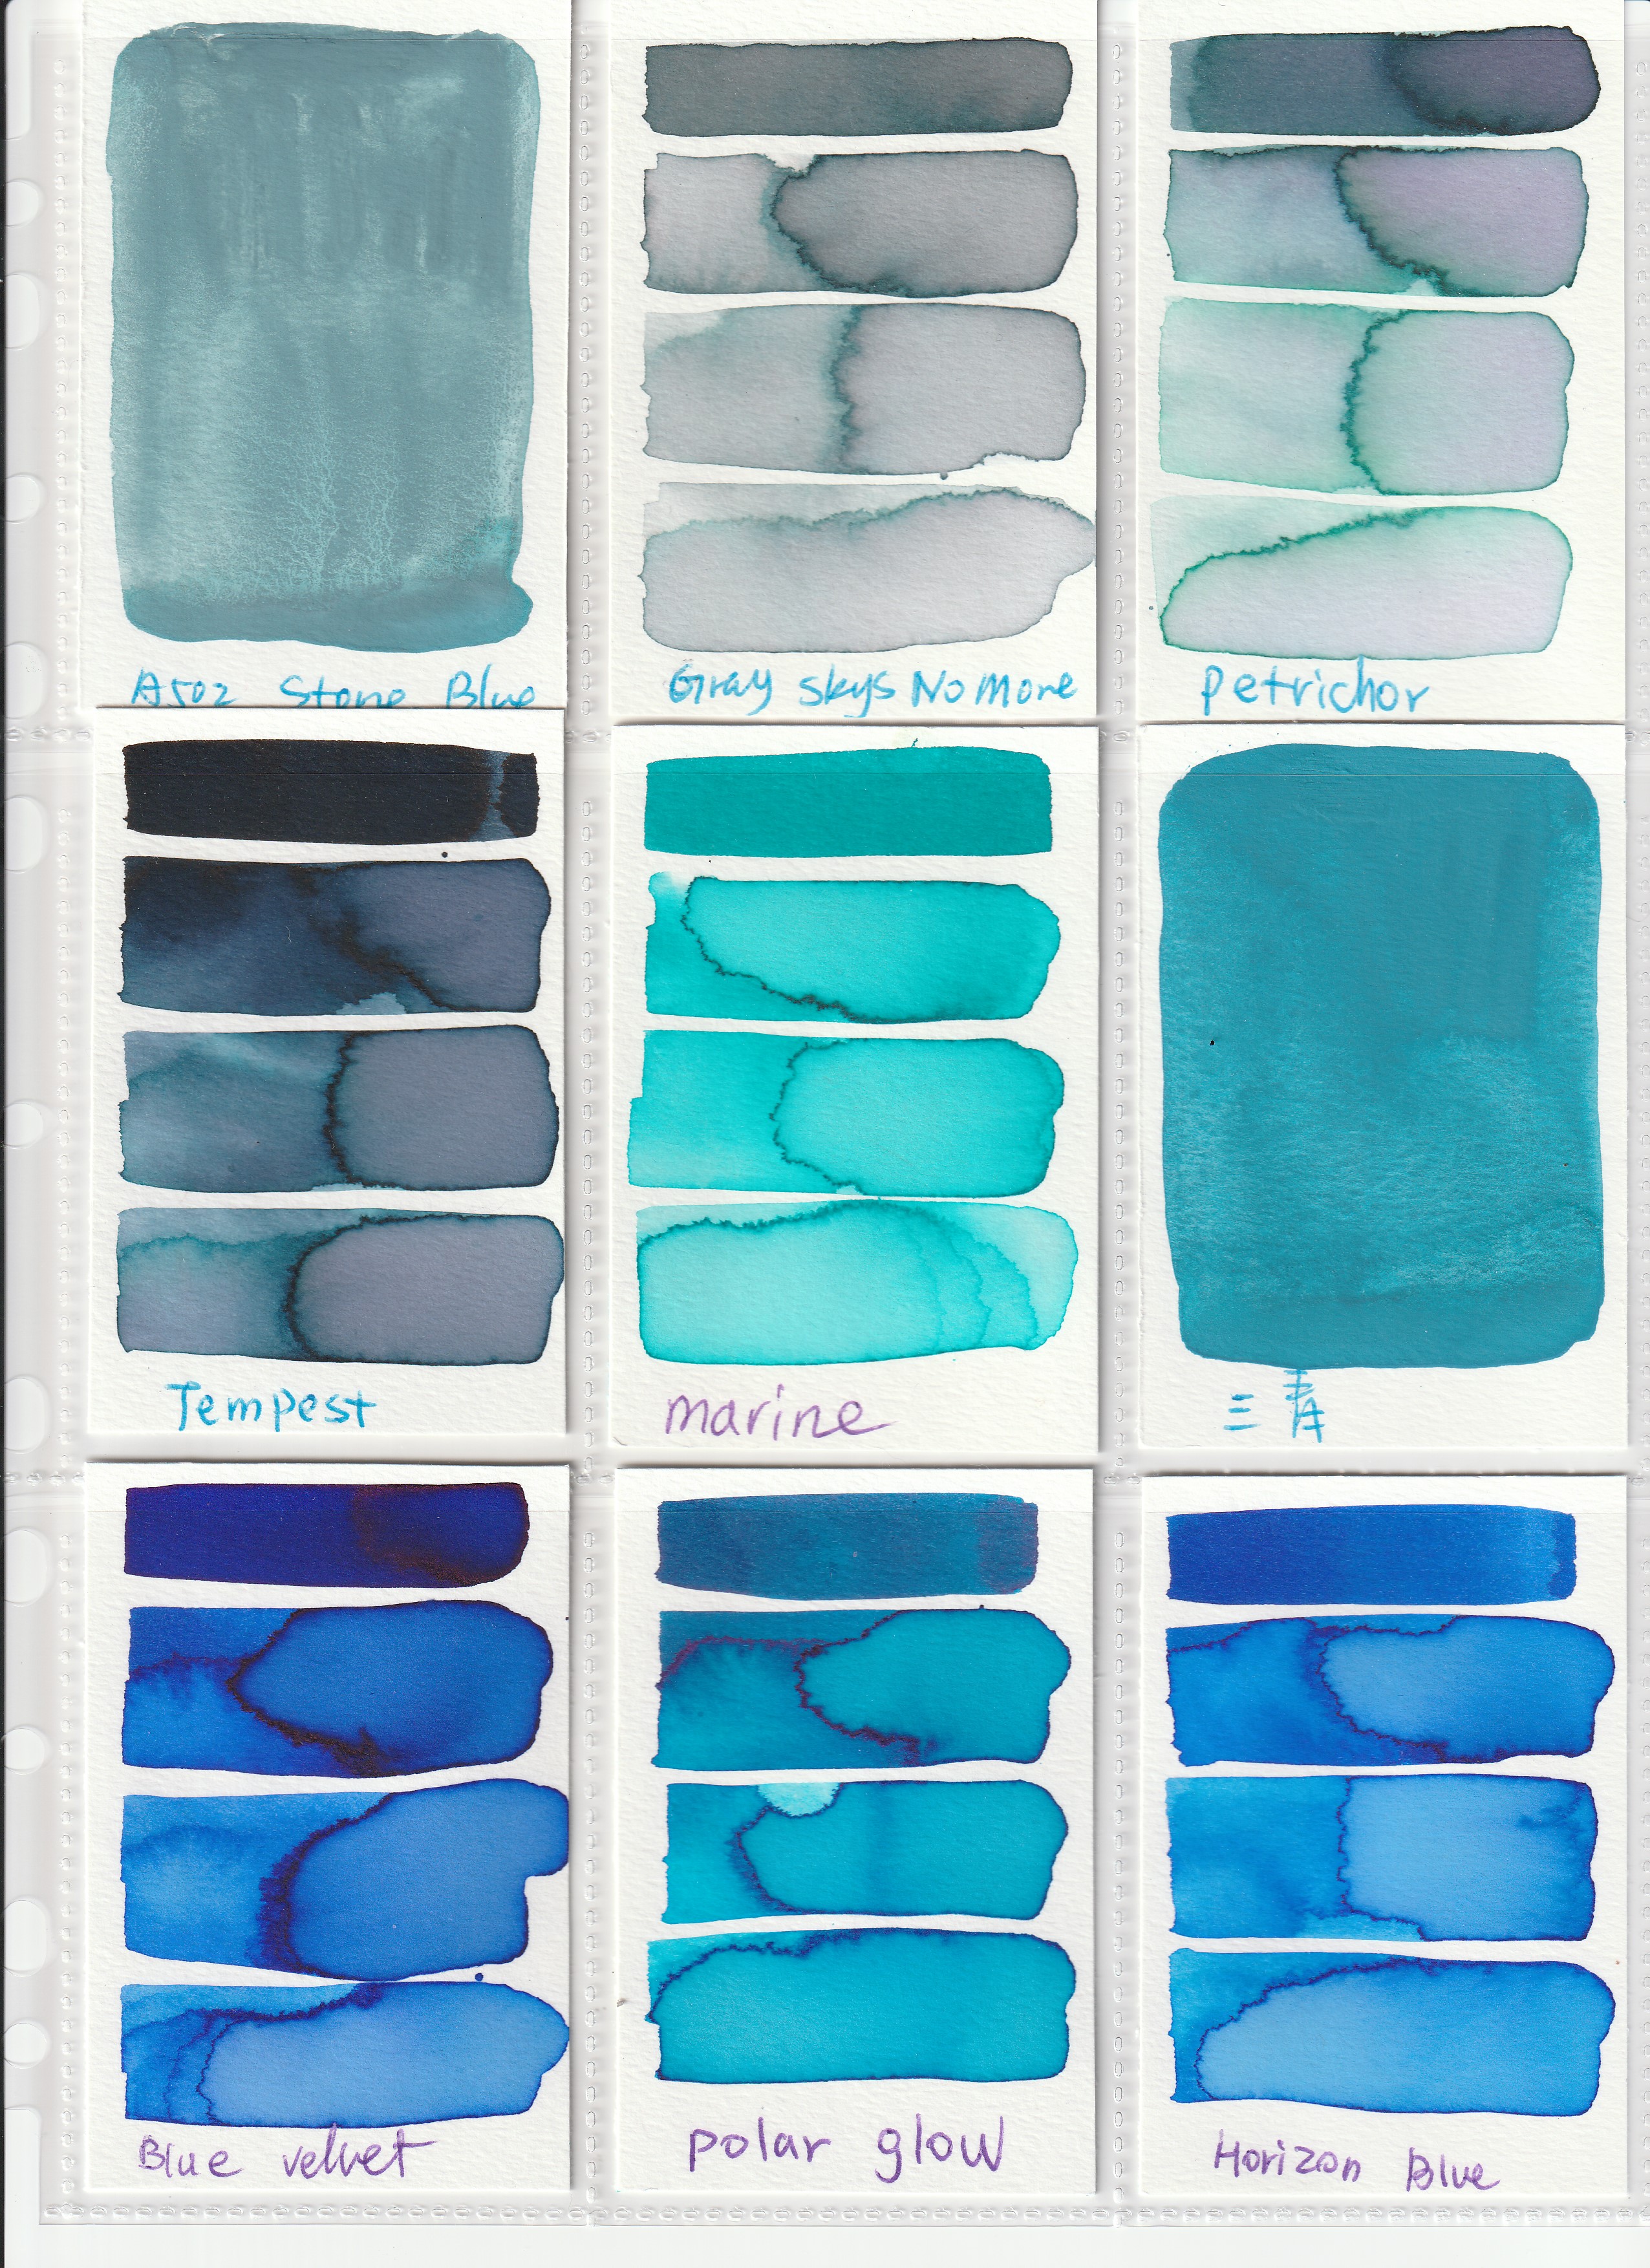 A502 Stone Blue
Gray skys No More
Petrichor
Tempest
marine
三青
Blue velvet
polar glow
Horizon Blue